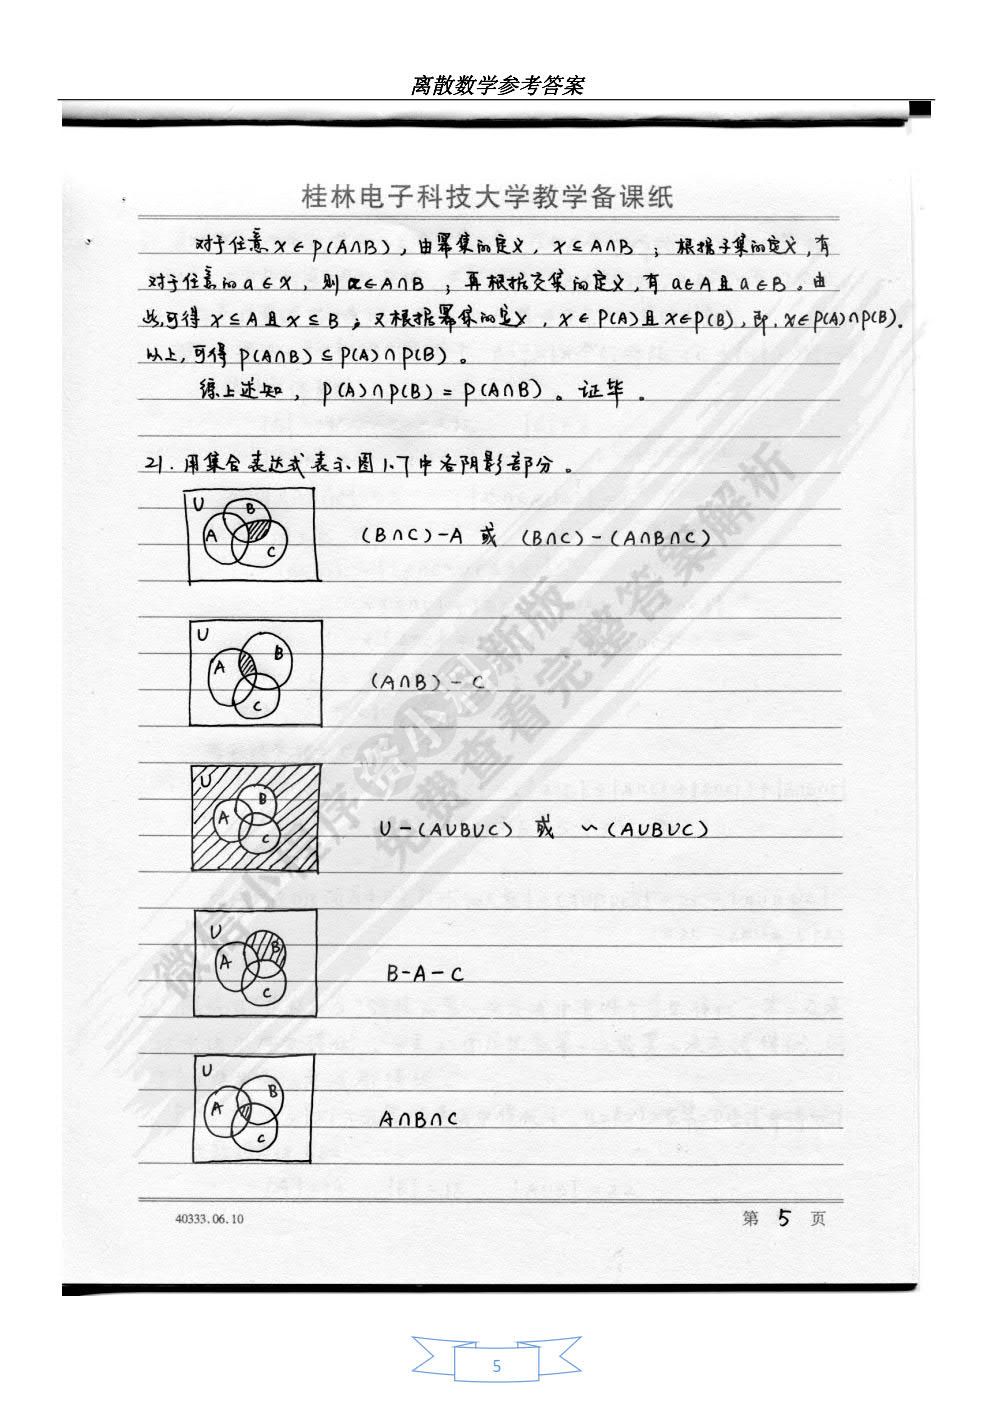 离散数学参考答案
桂林电子科技大学教学备课纸
对于任意 x∈P(A∩B), 由幂集的定义, x⊆A∩B ; 根据子集的定义, 有
对于任意的 a∈x, 则 a∈A∩B ; 再根据交集的定义, 有 a∈A且a∈B。由
此,可得 x⊆A且x⊆B ; 又根据幂集的定义, x∈P(A)且x∈P(B), 即, x∈P(A)∩P(B).
以上, 可得 P(A∩B)⊆P(A)∩P(B)。
综上述知, P(A)∩P(B)=P(A∩B)。证毕.
21. 用集合表达式表示图1.7中各阴影部分。
U
B
A
C
(B∩C)-A 或 (B∩C)-(A∩B∩C)
U
B
A
C
(A∩B)-C
U
B
A
C
U-(A∪B∪C) 或 ~(A∪B∪C)
U
B
A
C
B-A-C
U
B
A
C
A∩B∩C
微信小程序 搜小程新版
免费查看完整答案解析
40333.06.10
第 5 页
5